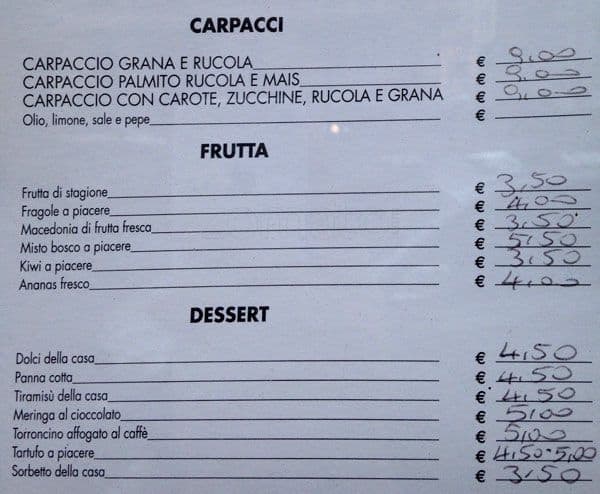 CARPACCI
CARPACCIO GRANA E RUCOLA € 9,00
CARPACCIO PALMITO RUCOLA E MAIS € 9,00
CARPACCIO CON CAROTE, ZUCCHINE, RUCOLA E GRANA € 9,00
Olio, limone, sale e pepe €
FRUTTA
Frutta di stagione € 3,50
Fragole a piacere € 4,00
Macedonia di frutta fresca € 3,50
Misto bosco a piacere € 5,50
Kiwi a piacere € 3,50
Ananas fresco € 4,00
DESSERT
Dolci della casa € 4,50
Panna cotta € 4,50
Tiramisù della casa € 4,50
Meringa al cioccolato € 5,00
Torroncino affogato al caffè € 5,00
Tartufo a piacere € 4,50-5,00
Sorbetto della casa € 3,50